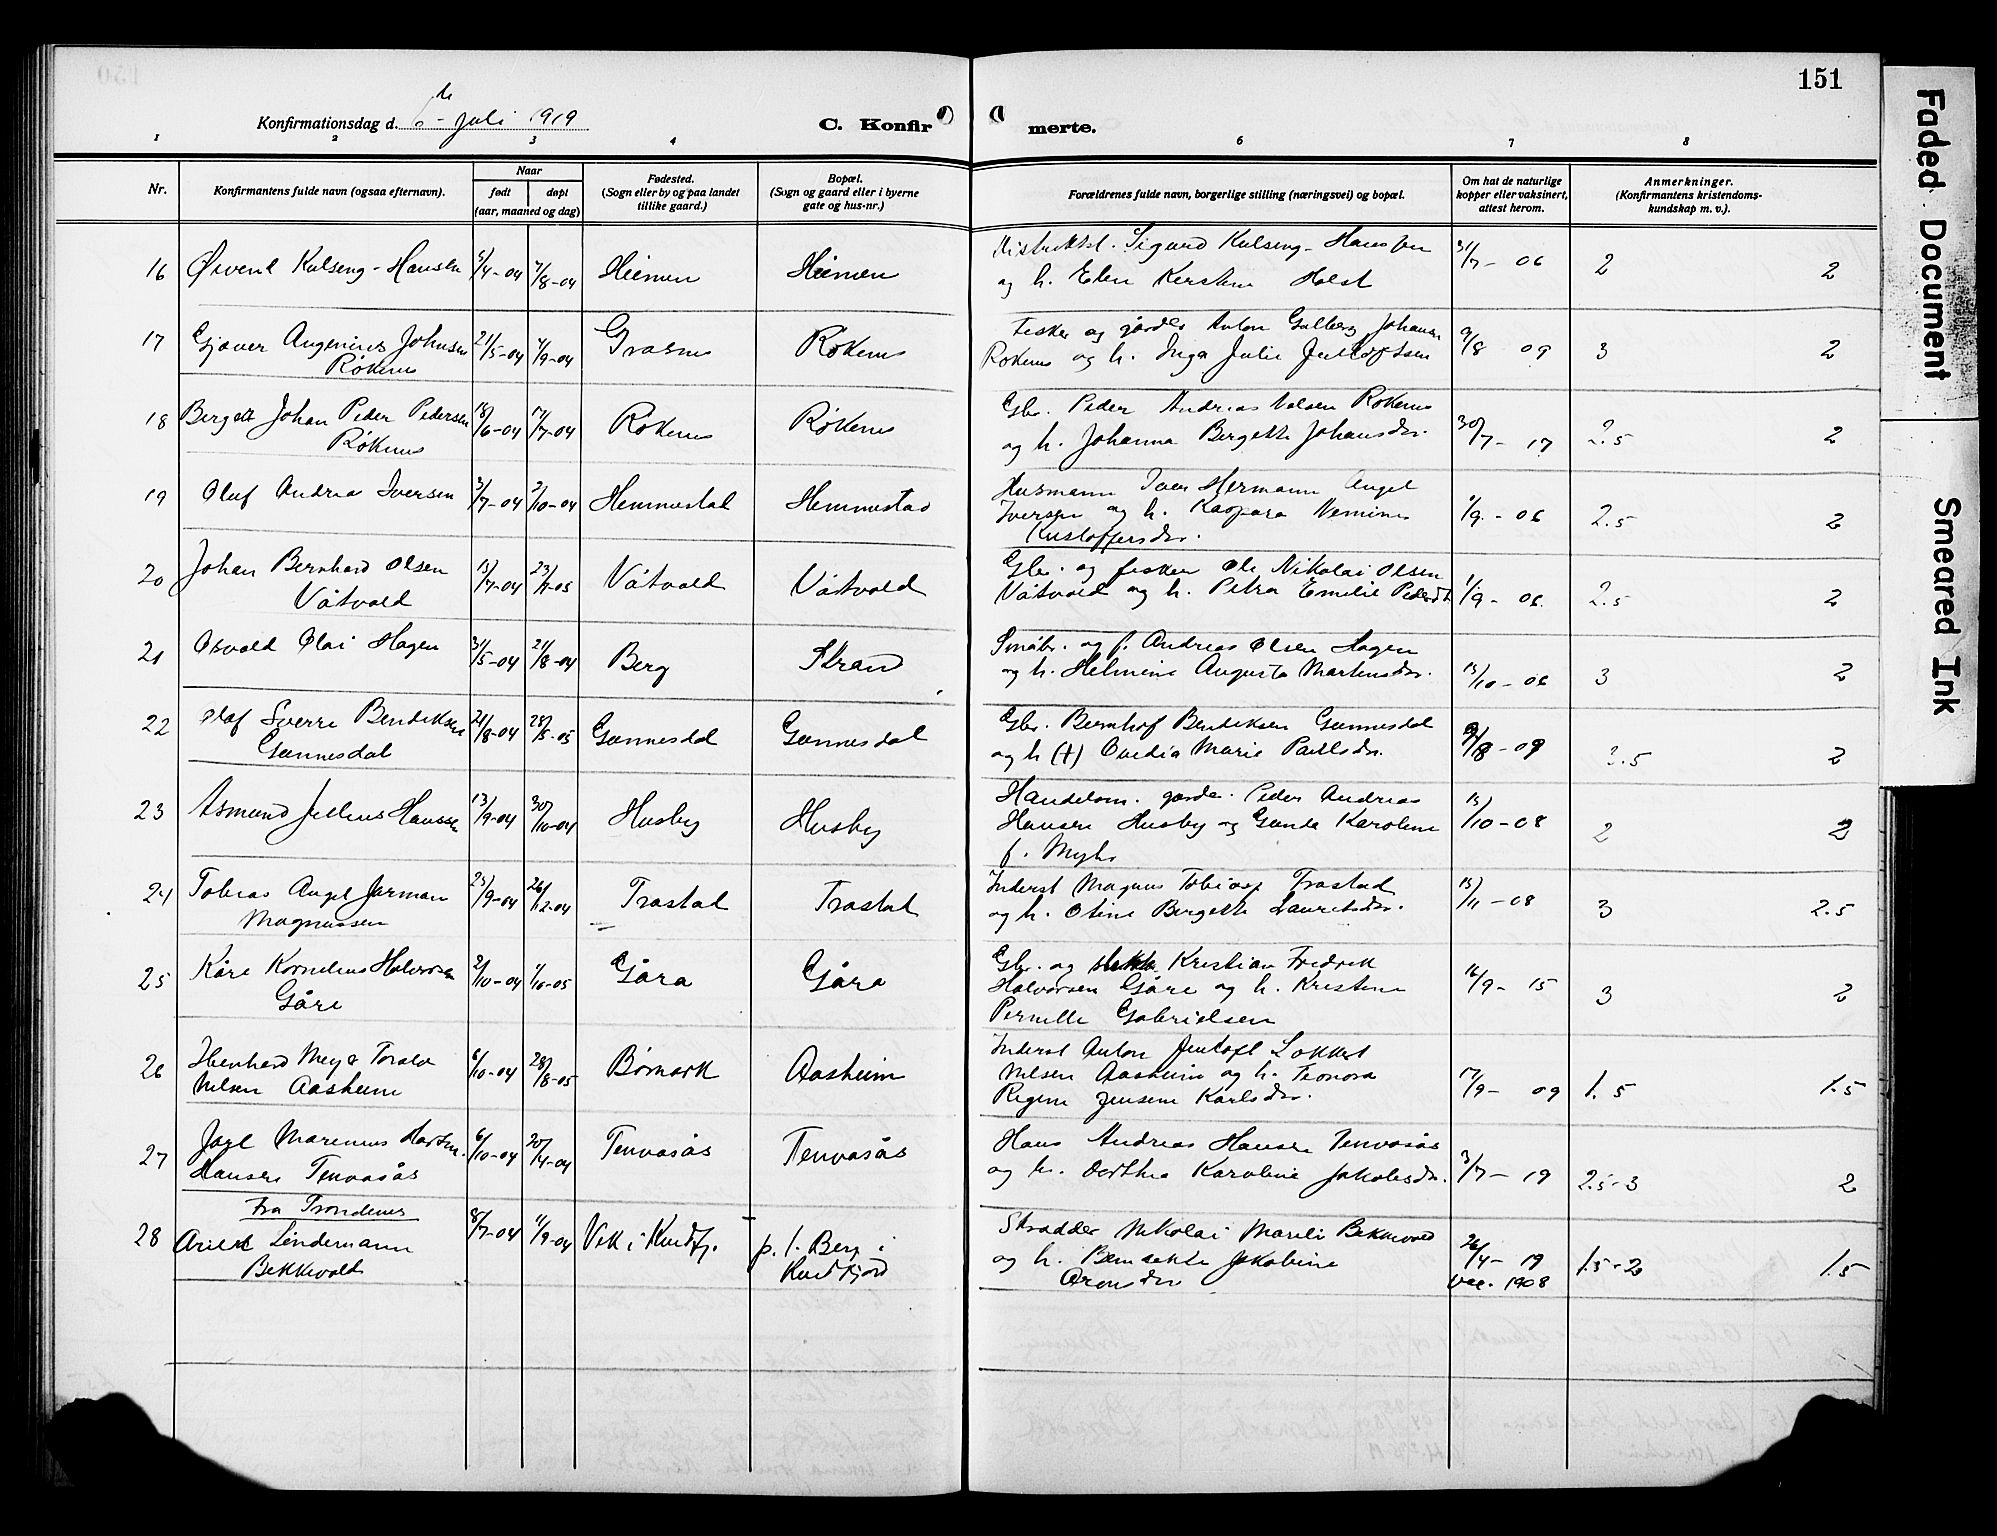 151
Konfirmationsdag d. 6te juli 1919
C. Konfirmerte.
1 2 3 4 6 7 8
Nr.
Konfirmantens fulde navn (ogsaa efternavn).
Naar
født
døpt
(aar, maaned og dag)
Fødested.
(Sogn eller by og paa landet
tillike gaard.)
Bopæl.
(Sogn og gaard eller i byerne
gate og hus-nr.)
Forældrenes fulde navn, borgerlige stilling (næringsvei) og bopæl.
Om hat de naturlige
kopper eller vaksinert,
attest herom.
Anmerkninger.
(Konfirmantens kristendoms-
kundskap m. v.).
16 Øivend Kulseng-Hansen 5/4-04 7/8-04 Heimen Heimen
Sigurd Kulseng-Hansen 31/7-06 2 2
og h. Ellen Kirstine Holst
17 Gjæver Angenius Johnsen 21/5-04 4/9-04 Grasnes Røkenes
Røkenes
Fisker og gårdbr Anton Golberg Johans. 9/8 09 3 2
Røkenes og h. Inga Julie Jentoftsen
18 Bergett Johan Peder Pedersen 18/6-04 17/7-04 Røkenes Røkenes
Røkenes
Gbr. Peder Andreas Nilsen Røkenes
og h. Johanna Bergette Johansdtr. 30/7-17 2.5 2
19 Oluf Andrea Iversen 3/7-04 2/10-04 Hemmestad Hemmestad
Husmann Iver Hermann Angel
Iversen og h. Kaspara Nemine 1/9-06 2.5 2
Kristoffersdtr.
20 Johan Bernhard Olsen 15/7-04 23/7-05 Våtvold Våtvold
Våtvold
Gbr. og fisker Ole Nikolai Olsen
Våtvold og h. Petra Emilie Pedersdtr 1/9-06. 2.5 2
21 Osvald Olai Hagen 31/5-04 21/8-04 Berg Strand
Småbr. og f. Andreas Olsen Hagen
og h. Helmine Augusta Martinsdtr. 15/10-06 3 2
22 Olaf Sverre Bendiksen 21/8-04 28/5-05 Gonnesdal Gonnesdal
Gonnesdal
Gbr. Bernhof Bendiksen Gonnesdal
og h (†) Ovedia Marie Paulsdtr. 9/8-09 2.5 2
23 Asmund Jullius Hanssen 13/9-04 30/10-04 Husby Husby
Handelsm. gårdbr. Peder Andreas
Hansen Husby og Ganda Karoline 15/10-08 2 2
f. Myhr
24 Tobias Angel Jarman 23/9-04 26/12-04 Trastad Trastad
Magnussen
Inderst Magnus Tobiass Trastad
og h. Otine Bergette Lauritsdtr. 15/11-08 3 2.5
25 Kåre Kornelius Halvorsen 2/10-04 1/10-05 Gåra Gåra
Gåre
Gbr. og Kristian Fredrik
Halvorsen Gåre og h. Kristine 16/9-15 3 2
Pernille Gabrielsen
26 Ihenhard Meyer Torald 6/10-04 28/8-05 Bømark Aasheim
Nilsen Aasheim
Inderst Anton Jentoft Lokkert
Nilsen Aasheim og h. Leonora 17/9-09 1.5 1.5
Regine Jensine Karlsdtr.
27 Jarl Marenius Hartm. 6/10-04 20/4-04 Tenvasås Tenvasås
Hansen Tenvasås
Hans Andreas Hansen Tenvasås
og h. Dorthea Karoline Jakobsdtr. 3/7-19 2.5-3 2
Fra Trondenes
28 Arild Lindemann 8/7-04 11/9-04 Vik i Kvedfj. p. t. Berg i
Bekkevold Kvedfjord
Skrædder Nikolai Mareli Bekkevold
og h. Benedikte Jakobine 26/4-19 1.5-2 1.5
Aronsdtr Vac. 1908
Faded Document
Smeared Ink